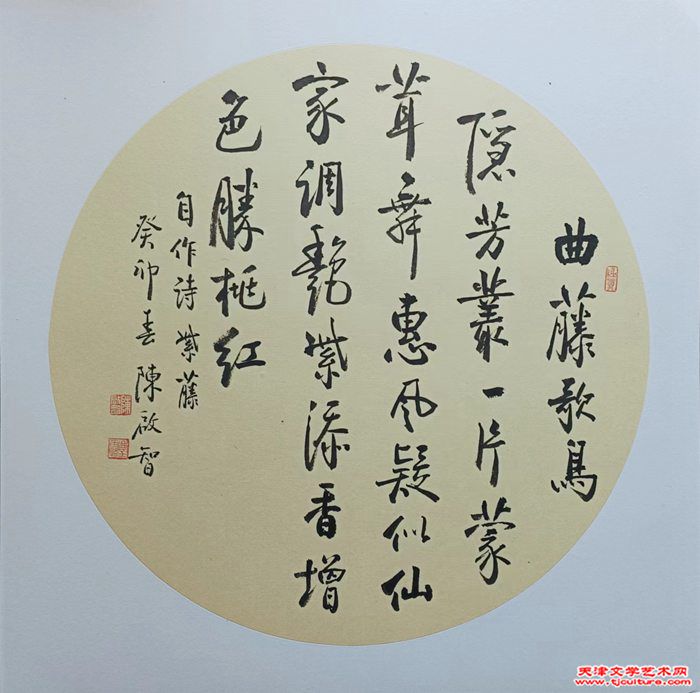 曲藤歌鳥
隱芳叢一片蒙
茸舞惠风疑似仙
家調艷紫添香增
色勝桃红
自作诗紫藤
癸卯春陳啟智
天津文学艺术网
www.tjculture.com